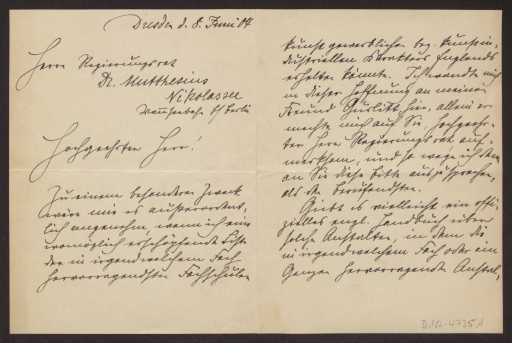 Dresden d. 8. Juni 04
Herrn Regierungsrat
Dr. Muthesius
Nikolassee
Wannseebahn b/ Berlin
Hochgeehrter Herr!
Zu einem besonderen Zweck
wäre mir es außerordent-
lich angenehm, wenn ich eine
womöglich erschöpfende Liste
der in irgendwelchem Fach
hervorragendsten Fachschulen
kunstgewerblichen bez. kunstin-
dustriellen Charakters Englands
erhalten könnte. Ich wandte mich
in dieser Hoffnung an meinen
Freund Gurlitt hin, allein er
machte mich auf Sie, hochgeehr-
ter Herr Regierungsrat auf-
merksam, und so wage ich denn
an Sie diese Bitte auszusprechen,
als den berufendsten.
Giebt es vielleicht ein offi-
zielles engl. Handbuch über
solche Anstalten, in dem die
in irgendwelchem Fach oder im
Ganzen hervorragende Anstal-